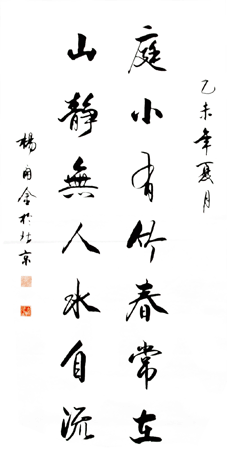 乙未年夏月
庭小有竹春常在
山靜無人水自流
楊 於北京